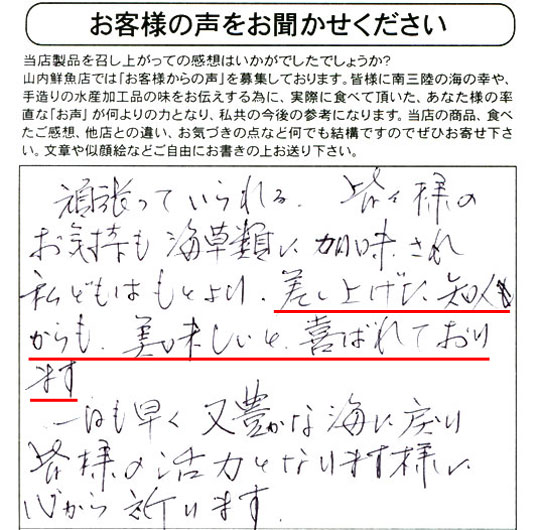 お客様の声をお聞かせください
当店製品を召し上がっての感想はいかがでしたでしょうか?
山内鮮魚店では「お客様からの声」を募集しております。皆様に南三陸の海の幸や、
手造りの水産加工品の味をお伝えする為に、実際に食べて頂いた、あなた様の率
直な「お声」が何よりの力となり、私共の今後の参考になります。当店の商品、食べ
たご感想、他店との違い、お気づきの点など何でも結構ですのでぜひお寄せ下さ
い。文章や似顔絵などご自由にお書きの上お送り下さい。
頑張っていられる、皆々様の
お気持も海草類に加味され
私どもはもとより、差し上げた、知人
からも、美味しいと、喜ばれており
ます
一日も早く又豊かな海に戻り
皆様の活力となります様に
心から祈ります。